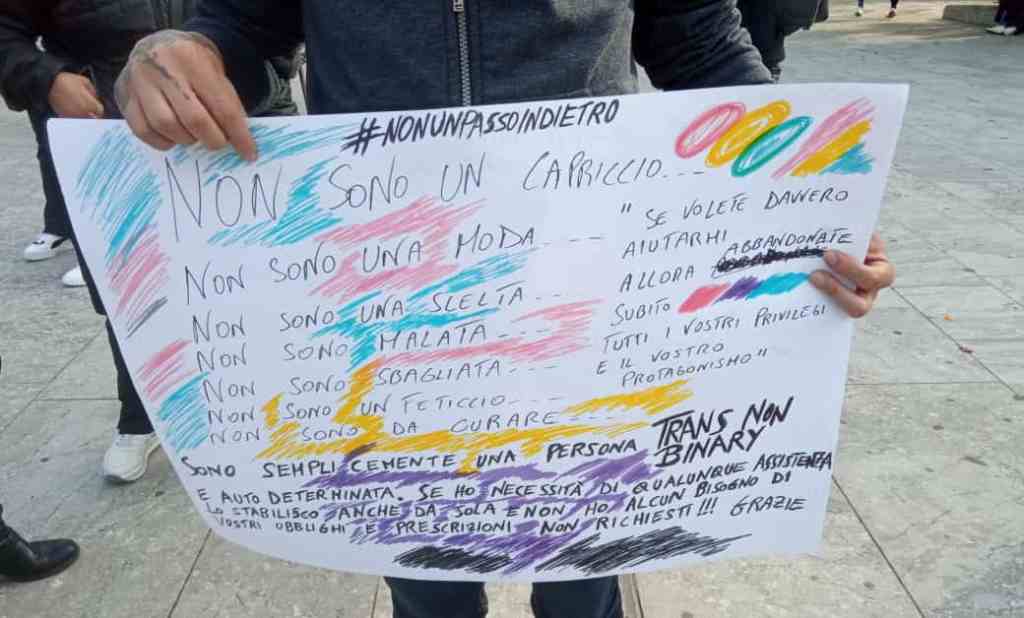 #NONUNPASSOINDIETRO
NON SONO UN CAPRICCIO...
NON SONO UNA MODA....
NON SONO UNA SCELTA...
NON SONO MALATA....
NON SONO SBAGLIATA....
NON SONO UN FETICCIO....
NON SONO DA CURARE....
"SE VOLETE DAVVERO
AIUTARMI
ALLORA ABBANDONATE
SUBITO
TUTTI I VOSTRI PRIVILEGI
E IL VOSTRO
PROTAGONISMO"
SONO SEMPLICEMENTE UNA PERSONA TRANS NON
BINARY
E AUTO DETERMINATA. SE HO NECESSITÀ DI QUALUNQUE ASSISTENZA
LO STABILISCO ANCHE DA SOLA E NON HO ALCUN BISOGNO DI
VOSTRI OBBLIGHI E PRESCRIZIONI NON RICHIESTI!!! GRAZIE